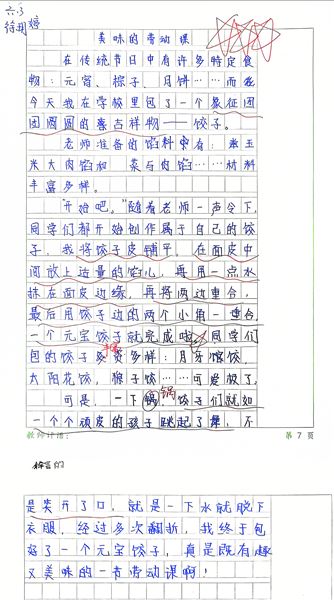 六.3
美味的劳动课
在传统节日中有许多特定食
物:元宵、粽子、月饼……而在
今天我在学校里包了一个象征团
团圆圆的吉祥物——饺子。
老师准备的馅料中有:玉
米大肉馅和菜与肉馅……材料
丰富多样。
“开始吧。”随着老师一声令下,
同学们都开始创作属于自己的饺
子,我将饺子皮铺平,在面皮中
间放上适量的馅儿,再用一点水
抹在面皮边缘,再将两边重合,
最后用饺子边的两个小角一重合,
一个元宝饺子就完成啦!同学们
包的饺子多样:月牙馄饨,
太阳花饺,饺……可爱极了,
可是,一下锅,饺子们就如
锅
一个个顽皮的孩子跳起了舞,不
教师评语:
第 7 页
是笑开了口,就是一下水就脱下
衣服,经过多次翻折,我终于包
好了一个元宝饺子,真是既有趣
又美味的一节劳动课啊!